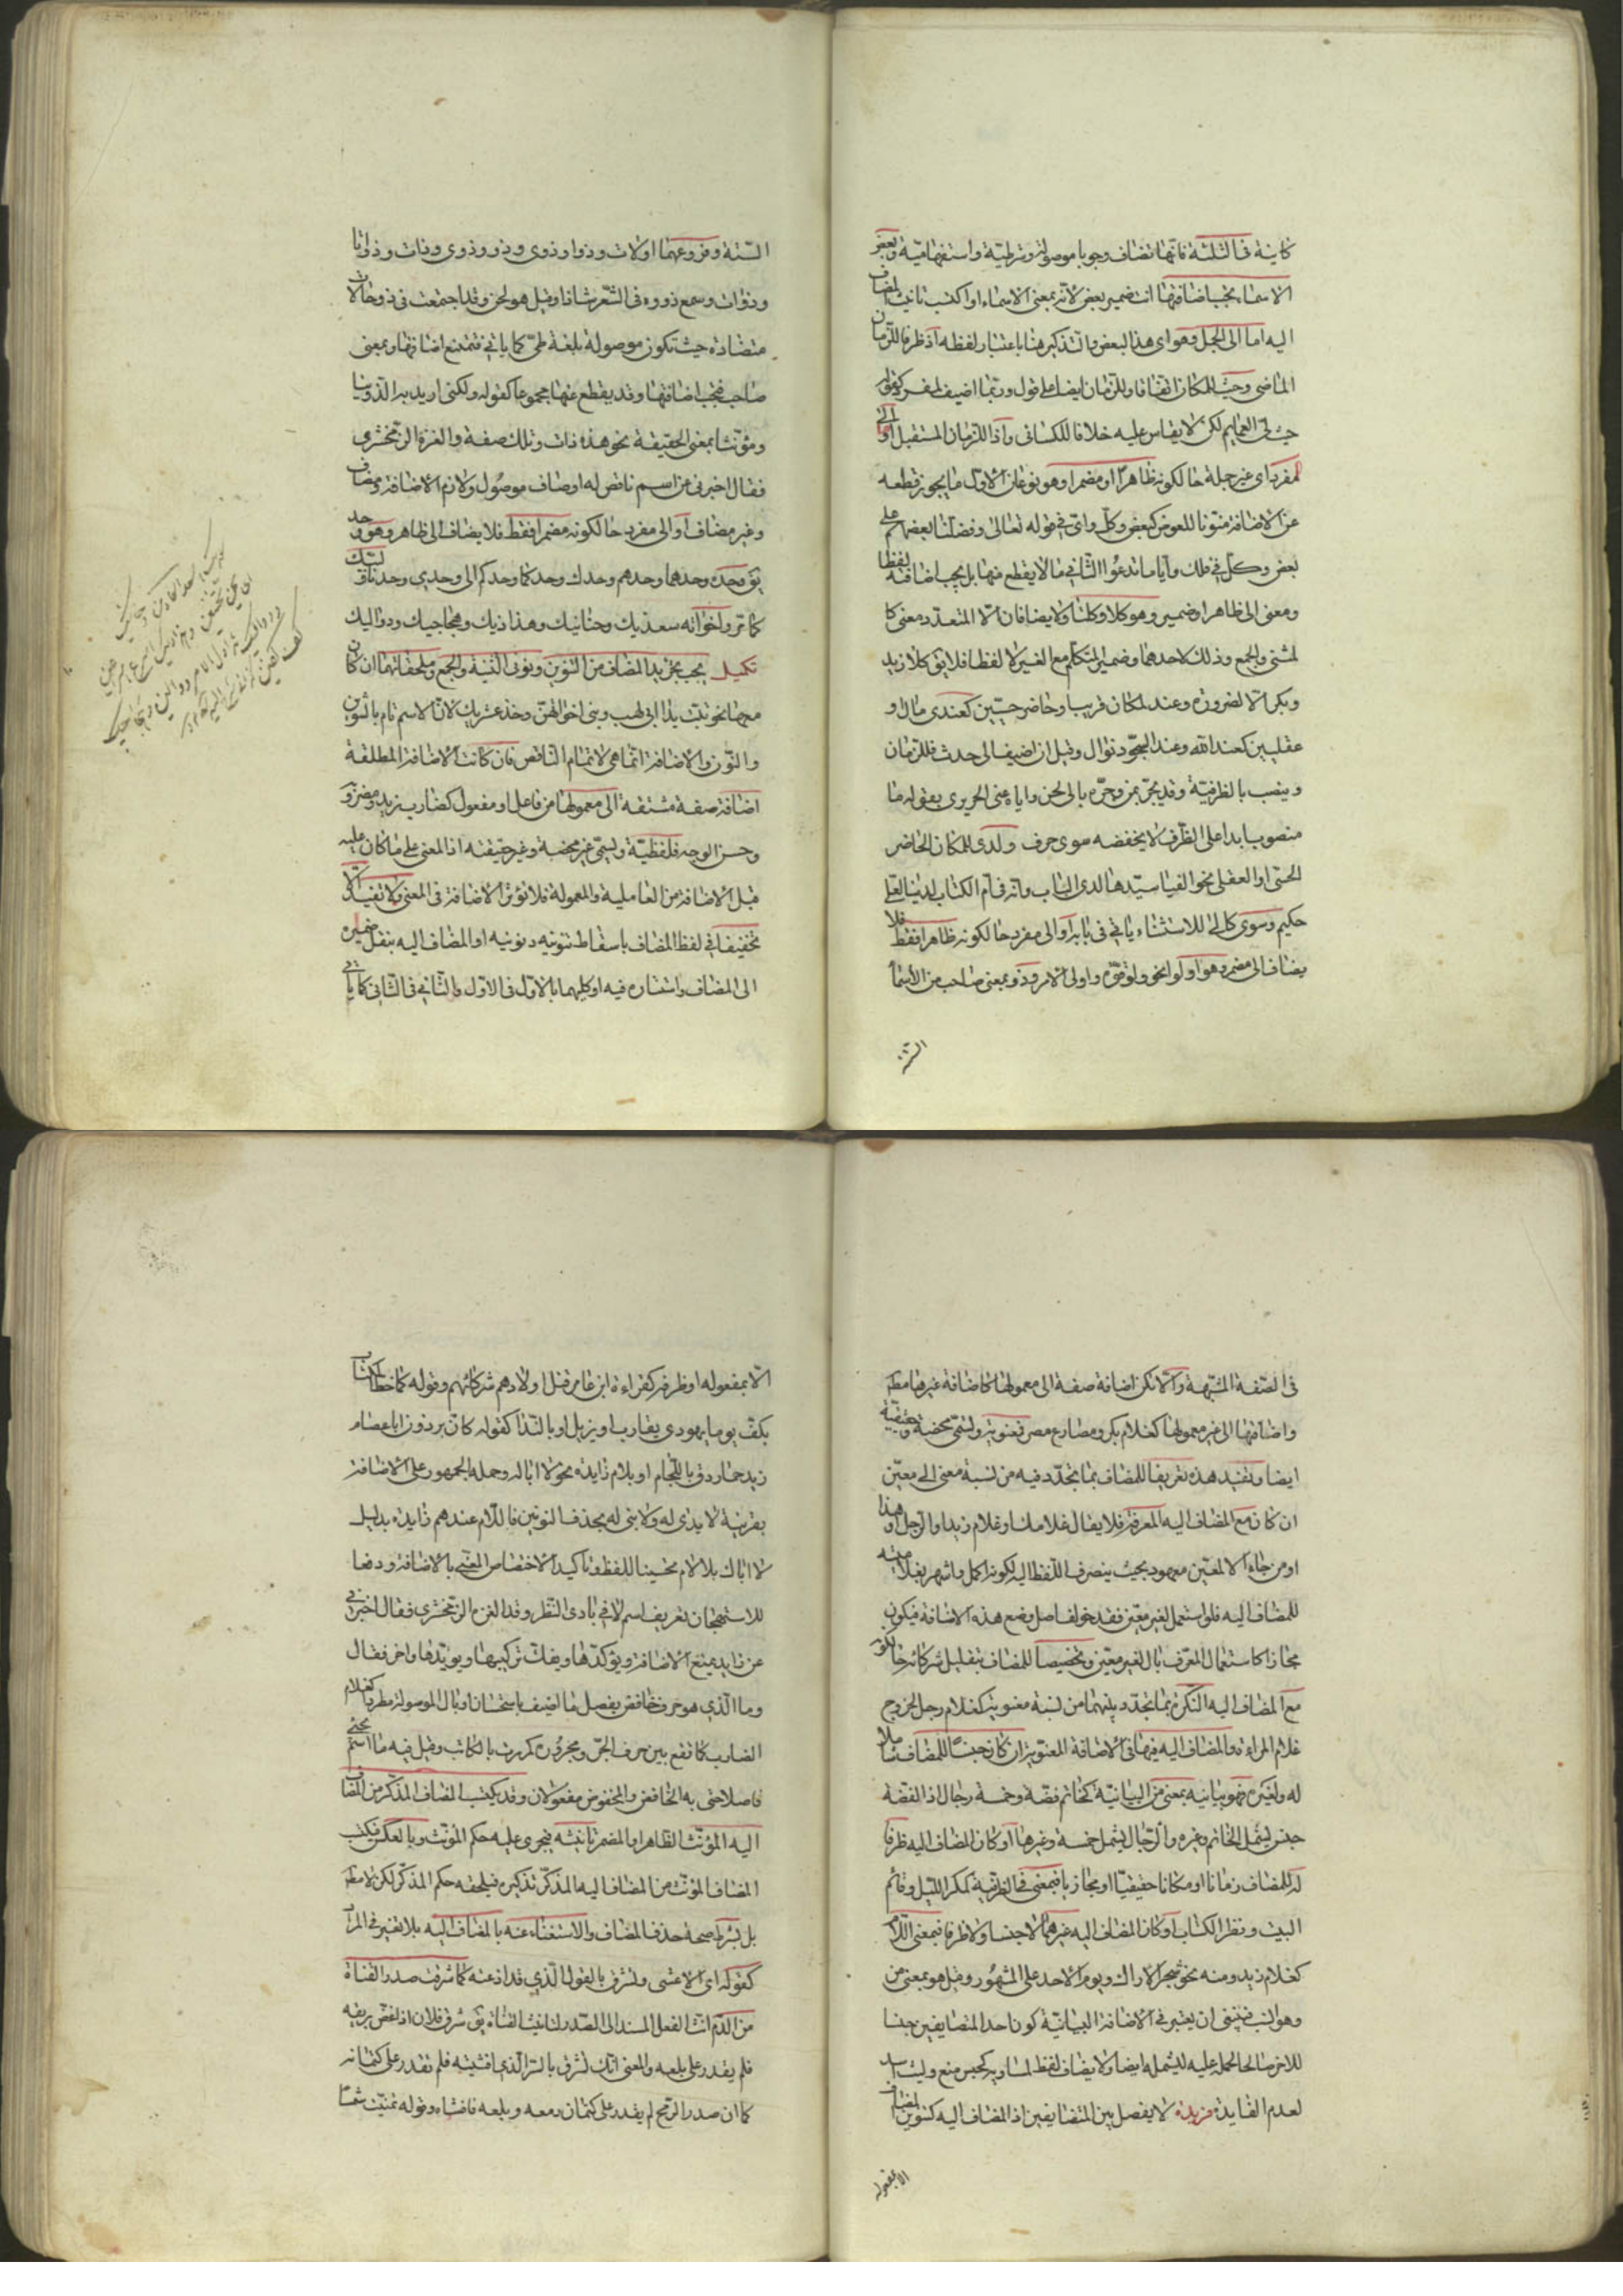 كاينة فى الثلثة فانها تضاف وجوبا موصولة وشرطية واستفهامية وبعض
الاسماء يجب اضافتها انث ضمير بعض لانه بمعنى الاسماء او اكتسب تانيث المضاف
اليه اما الى الجمل وهو اى هذا البعض والتذكير هنا باعتبار لفظه اذ ظرفا للزمان
الماضى وحيث للمكان اتفاقا وللزمان ايضا على قول وربما اضيف لمفرد كقوله
حيث لى العمايم لكن لا يقاس عليه خلافا للكسائى واذا للزمان المستقبل او الى
المفرد اى غير جملة حالكونه ظاهرا او مضمرا وهو نوعان الاول ما يجوز قطعه
عن الاضافة منونا للعوض كبعض وكل واى فى قوله تعالى وفضلنا بعضهم على
بعض وكل فى فلك وايا ما تدعوا الثانى ما لا يقطع منها بل يجب اضافته لفظا
ومعنى الى ظاهر او ضمير وهو كلا وكلتا ولا يضافان الا لمتعدد معنى كا
لمثنى والجمع وذلك لاحدهما وضمير المتكلم مع الغير لا لفظا فلا يق كلا زيد
وبكر الا لضرورة وعند لمكان قريب او حاضر حسيين كعندى مال او
عقليين كعند الله وعند الهجود نوال وقيل ان اضيف الى حدث فللزمان
وينصب بالظرفية وقد يجر بمن وجره بالى لحن واياه عنى الحريرى بقوله ما
منصوب ابدا على الظرف لا يخفضه سوى حرف ولدى للمكان الحاضر
الحسى او العقلى نحو الفيا سيدها لدى الباب وانه فى ام الكتاب لدينا لعلى
حكيم وسوى كالى للاستثناء ياتى فى بابه او الى مفرد حالكونه ظاهرا فقط فلا
يضاف الى مضمر وهو اولو نحو ولو قوة واولى الامر وذو بمعنى صاحب من الاسما
الستة
الستة وفروعهما اولات وذوا وذوى وذو وذوى وذات وذاتا
وذوات وسمع ذووه فى الشعر شاذا وقيل هو لحن وقد اجتمعت فى ذو حالات
متضادة حيث تكون موصولة بلغة طى كما ياتى فتمتنع اضافتها وبمعنى
صاحب فيجب اضافتها وقد يقطع عنها مجموعا كقوله ولكنى اريد به الذوينا
ومؤنثا بمعنى الحقيقة نحو هذه ذات وتلك صفة والغزه الزمخشرى
فقال اخبرنى عن اسم ناقص له اوصاف موصول ولازم الاضافة ومضاف
وغير مضاف او الى مفرد حالكونه مضمرا فقط فلا يضاف الى ظاهر وهو وحد
يق وحده وحدهما وحدهم وحدك وحدكما وحدكم الى وحدى وحدنا ولبيك
كما تر واخواته سعديك وحنانيك وهذاذيك وهجاجيك ودواليك
تكميل يجب تجريد المضاف من التنوين ونونى التثنية والجمع وملحقاتهما ان كان
معها نحو تبت يدا ابى لهب وبنى اخوالهن وخذ عشريك لان الاسم تام بالتنوين
والنون والاضافة انما هى لاتمام الناقص فان كانت الاضافة المطلقة
اضافة صفة مشتقة الى معمولها من فاعل او مفعول كضارب زيد ومضروب
وحسن الوجه فلفظية وتسمى غير محضة وغير حقيقة اذ المعنى على ما كان عليه
قبل الاضافة من العاملية والمعمولة فلا تؤثر الاضافة فى المعنى ولا تفيد الا
تخفيفا فى لفظ المضاف باسقاط تنوينه ونونيه او المضاف اليه بنقل ضميره
الى المضاف واستتاره فيه او كليهما بالاول فى الاول والثانى فى الثانى كما ياتى
فى الصفة المشبهة والا تكن اضافة صفة الى معمولها كاضافة غيرها مطلقا
واضافتها الى غير معمولها كغلام بكر ومصارع مصر فمعنوية وتسمى محضة وحقيقية
ايضا وتفيد هذه تعريفا للمضاف بما يتجدد فيه من نسبة معنى الى معين
ان كان مع المضاف اليه المعرفة فلا يقال غلامك او غلام زيد او الرجل او هذا
او من جاء الا لمعين معهود بحيث ينصرف اللفظ اليه لكونه اكمل واشهر
للمضاف اليه فلو استعمل لغير معين فقد خولف اصل وضع هذه الاضافة فيكون
مجازا كاستعمال المعرف بال لغير معين وتخصيصا للمضاف بتقليل شركائه حالكونه
مع المضاف اليه النكرة بما يتجدد بينهما من نسبة معنوية كغلام رجل لخروج
غلام المراءة والمضاف اليه فيها فى الاضافة المعنوية ان كان جنسا للمضاف شاملا
له ولغيره فهو بيانية بمعنى من البيانية كخاتم فضة وخمسة رجال اذ الفضة
جنس يشمل الخاتم وغيره والرجال يشمل خمسة وغيرها او كان المضاف اليه ظرفا
له للمضاف زمانا او مكانا حقيقيا او مجازيا فبمعنى فى الظرفية كمكر الليل وقائم
البيت ونظر الكتاب او كان المضاف اليه غيرهما لا جنسا ولا ظرفا فبمعنى اللام
كغلام زيد ومنه نحو شجر الاراك ويوم الاحد على المشهور وقيل هو بمعنى من
وهو انسب فينبغى ان يعتبر فى الاضافة البيانية كون احد المضايفين جنسا
للاخر صالحا لحمله عليه ليشمله ايضا ولا يضاف لفظ لمساويه كحبس منع وليث اسد
لعدم الفايدة فريدة لا يفصل بين المتضايفين اذ المضاف اليه كتنوين المضاف
الا بمفعوله
الا بمفعوله او ظرفه كقراءة ابن عامر قتل اولادهم شركائهم وقوله كما خط الكتاب
بكف يوما يهودى يقارب او يزيل او بالندا كقوله كان برذون ابا عصام
زيد حمار دق باللجام او بلام زايدة نحو لا ابا له وحمله الجمهور على الاضافة
بقرينة لا يدى له ولا بنى له بحذف النونين فاللام عندهم زايدة بدليل
لا اباك بلا لام تحسينا للفظ وتاكيد الاختصاص المعنى بالاضافة ودفعا
للاستهجان تعريف اسم لا فى بادى النظر وقد الغزه الزمخشرى فقال اخبرنى
عن زايد يمنع الاضافة ويؤكدها ويفك تركيبها ويؤيدها واخر فقال
وما الذي هو حرف خافض يفصل ما اضيف باستحسان او بال الموصولة مطردا كغلام
الضارب كما تقع بين حرف الجر ومجروره كمررت بالكاتب وقيل فيه ما اسم يجئ
فاصلا حتى به الخافض والمخفوض مفعولان وقد يكتسب المضاف المذكر من المضاف
اليه المؤنث الظاهر او المضمر تانيثه فيجرى عليه حكم المؤنث وبالعكس فيكتسب
المضاف المؤنث من المضاف اليه المذكر تذكيره فيلحقه حكم المذكر لكن لا مطلقا
بل بشرط صحة حذف المضاف والاستغناء عنه بالمضاف اليه بلا تغير فى المراد
كقوله اى الاعشى وتشرق بالقول الذى قد اذعته كما شرقت صدر القناة
من الدم انث الفعل المسند الى الصدر لتانيث القناة يق شرق فلان اذ لغص بريقه
فلم يقدر على بلعه والمعنى انك تشرق بالسر الذى افشيته فلم تقدر على كتمانه
كما ان صدر الرمح لم يقدر على كتمان دمعه وبلعه فافشاه وقوله